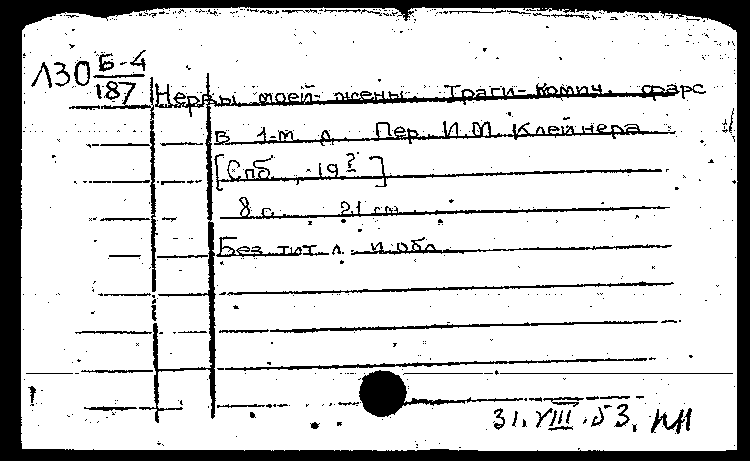 Л30 Б-4/187
Нервы моей жены. Траги-комич. фарс
в 1-м д. Пер. И.М. Клейнера
[Спб., 19?]
8 с. 21 см
Без тит. л. и обл.
31.VIII.53.